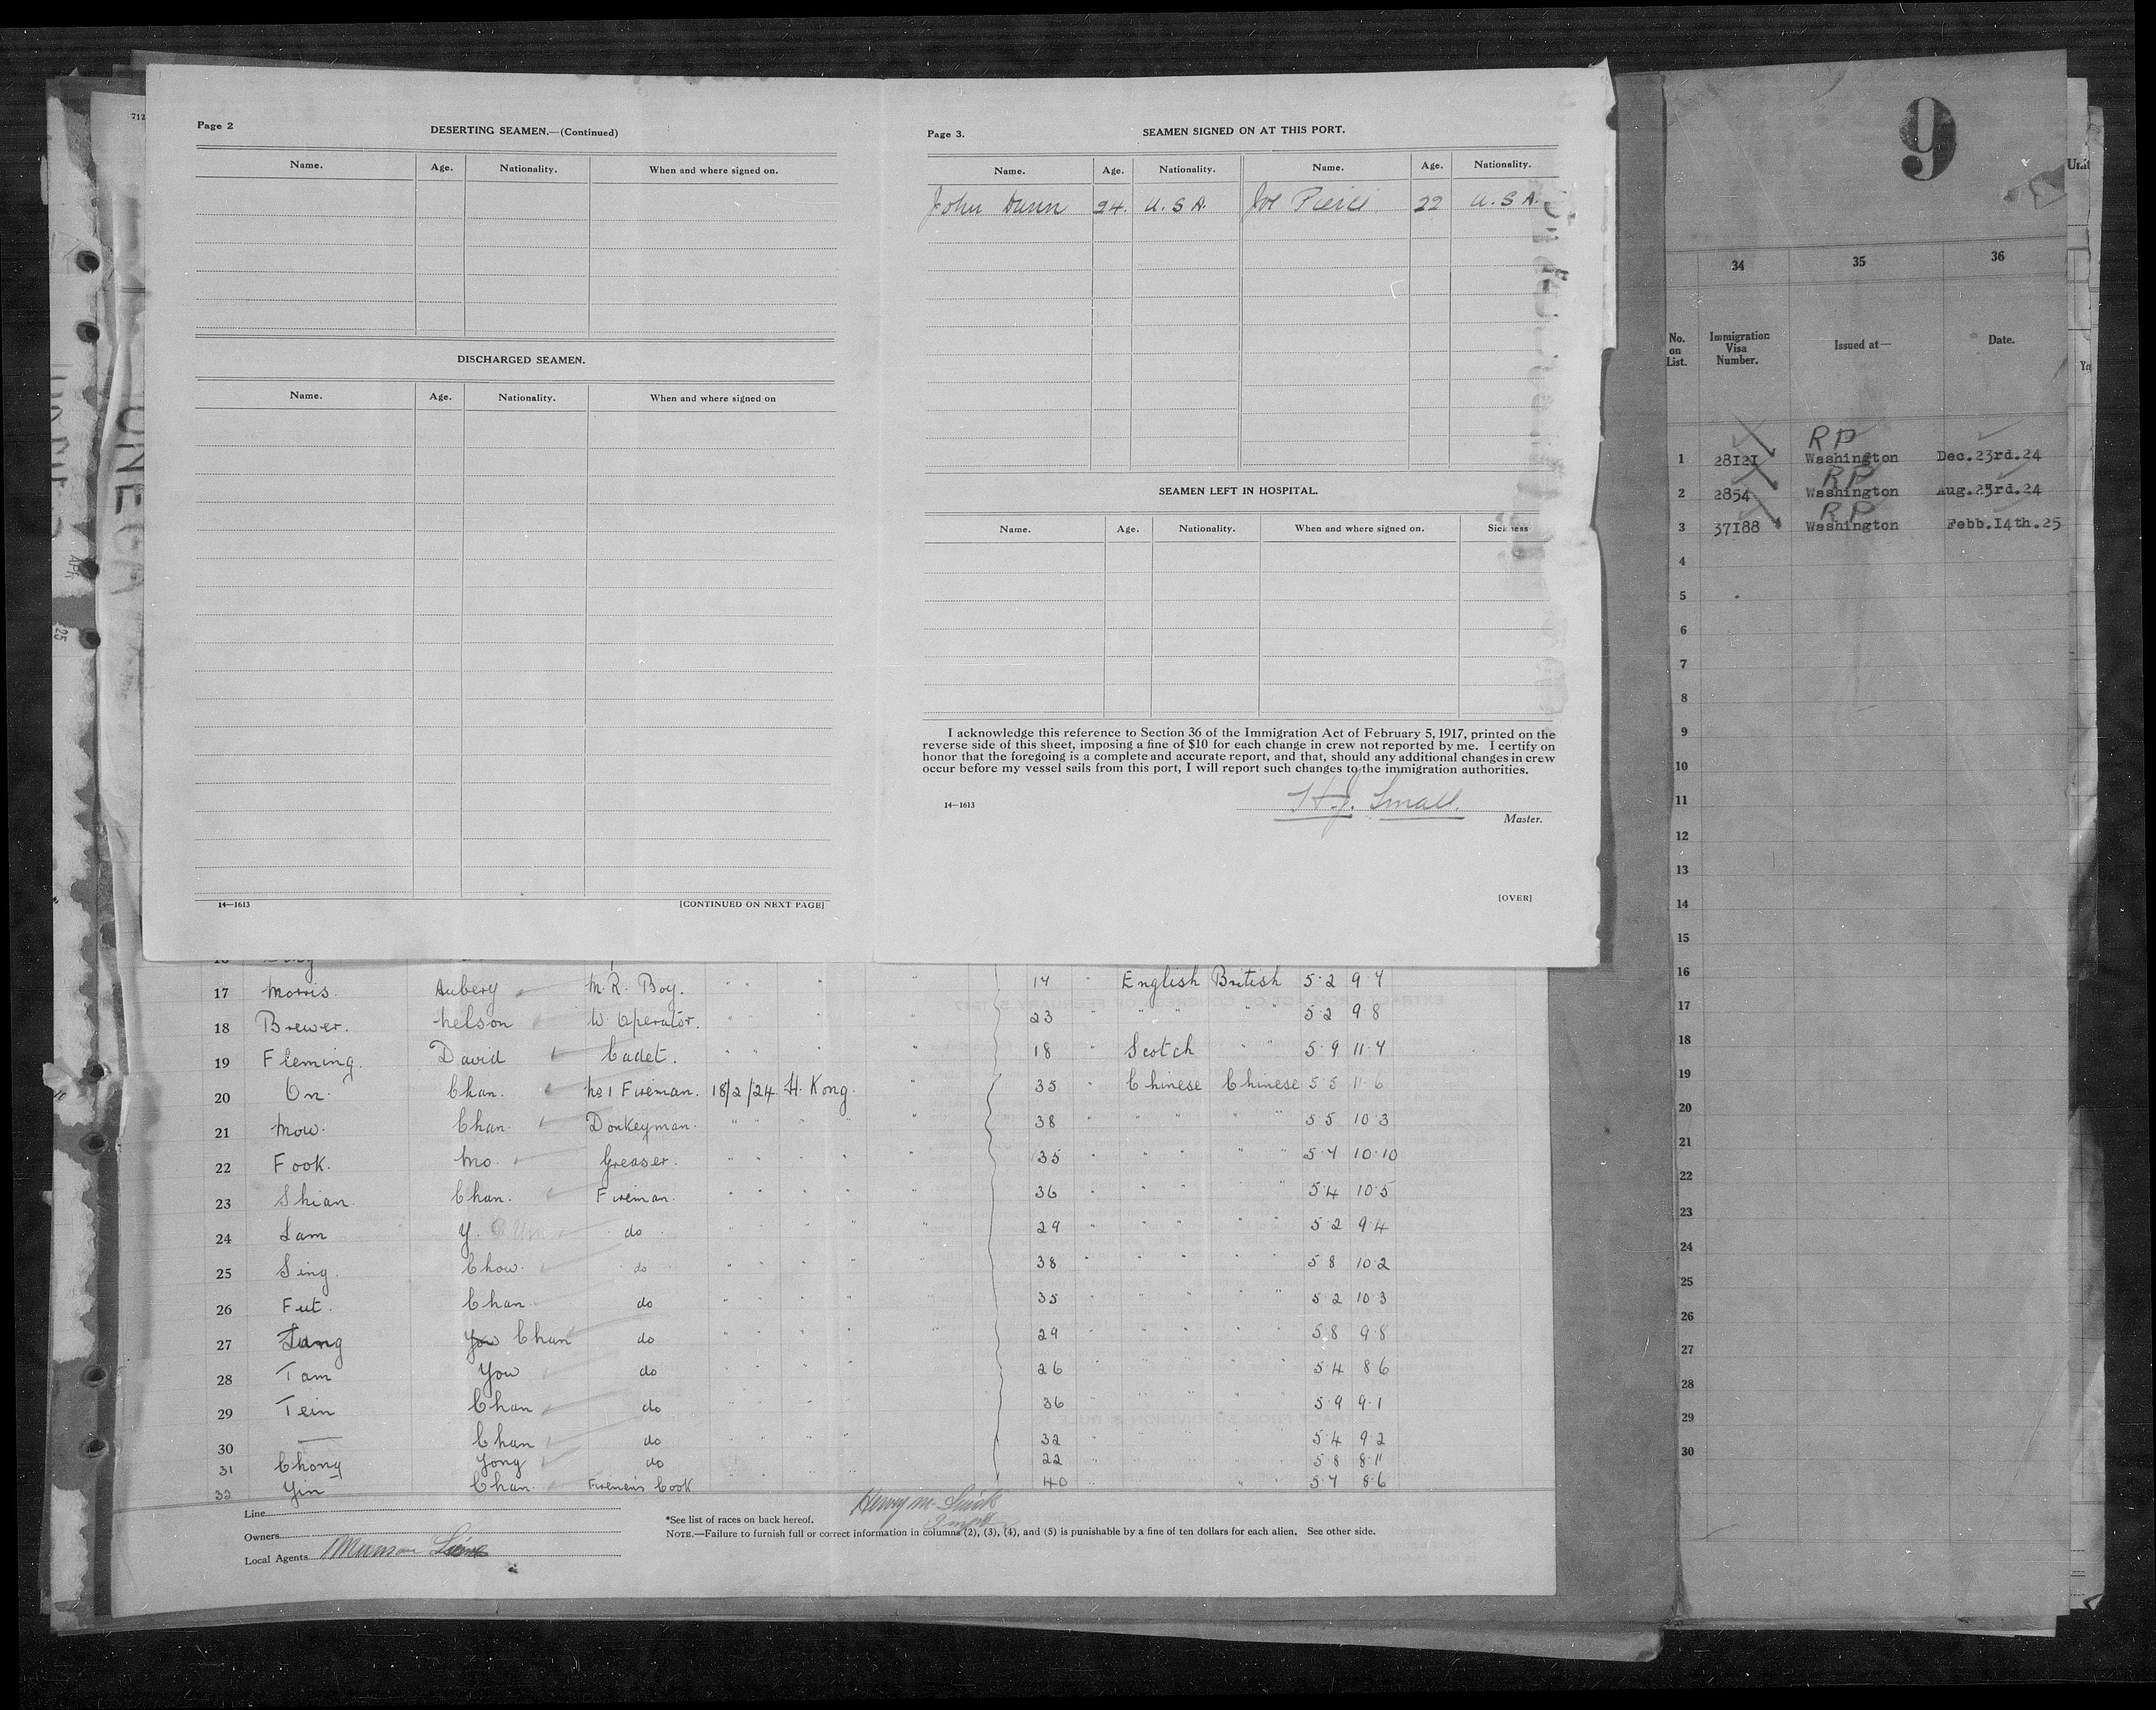 Page 2
DESERTING SEAMEN.—(Continued)
Name. Age. Nationality. When and where signed on.
DISCHARGED SEAMEN.
Name. Age. Nationality. When and where signed on
14—1613 [CONTINUED ON NEXT PAGE]
Page 3.
SEAMEN SIGNED ON AT THIS PORT.
Name. Age. Nationality. Name. Age. Nationality.
John Dunn 24. U.S.A. Joe Pierce 22 U.S.A.
SEAMEN LEFT IN HOSPITAL.
Name. Age. Nationality. When and where signed on. Sickness
I acknowledge this reference to Section 36 of the Immigration Act of February 5, 1917, printed on the
reverse side of this sheet, imposing a fine of $10 for each change in crew not reported by me. I certify on
honor that the foregoing is a complete and accurate report, and that, should any additional changes in crew
occur before my vessel sails from this port, I will report such changes to the immigration authorities.
H.J. Small.
14—1613
Master.
[OVER]
17 Morris. Aubery M.R. Boy. " " " 14 " English British 5.2 9.7
18 Brewer. Nelson W. Operator. " " " 23 " " " " " 5.2 9.8
19 Fleming. David Cadet. " " " " 18 " Scotch " " 5.9 11.7
20 On. Chan. No 1 Fireman. 18/2/24 H. Kong. " 35 " Chinese Chinese 5 5 11.6
21 Mow. Chan. Donkeyman. " " " " " 38 " " " " " 5 5 10 3
22 Fook. Mo. Greaser. " " " " " 35 " " " " " 5.7 10.10
23 Shian. Chan. Fireman. " " " " " 36 " " " " " 5.4 10.5
24 Lam Y. do " " " " 29 " " " " " 5.2 9.4
25 Sing. Chow. do " " " " 38 " " " " " 5 8 10.2
26 Fut. Chan. do " " " " 35 " " " " " 5 2 10 3
27 Chan do " " " " " 29 " " " " " 5.8 9.8
28 Tam You do " " " " 26 " " " " " 5.4 8 6
29 Tein Chan do " " " " 36 " " " " " 5.9 9.1
30 — Chan do " " " " 32 " " " " 5 4 9.2
31 Chong Yong do 22 " 5 8 8.11
32 Yin Chan. Firemen's Cook 40 " 5.7 8.6
Line
Owners
Local Agents Munson Line
*See list of races on back hereof.
NOTE.—Failure to furnish full or correct information in columns (2), (3), (4), and (5) is punishable by a fine of ten dollars for each alien. See other side.
9
34 35 36
No. on List. Immigration Visa Number. Issued at— Date.
RP
1 28121 Washington Dec.23rd.24
RP
2 2854 Washington Aug.23rd.24
RP
3 37188 Washington Febb.14th.25
4
5
6
7
8
9
10
11
12
13
14
15
16
17
18
19
20
21
22
23
24
25
26
27
28
29
30